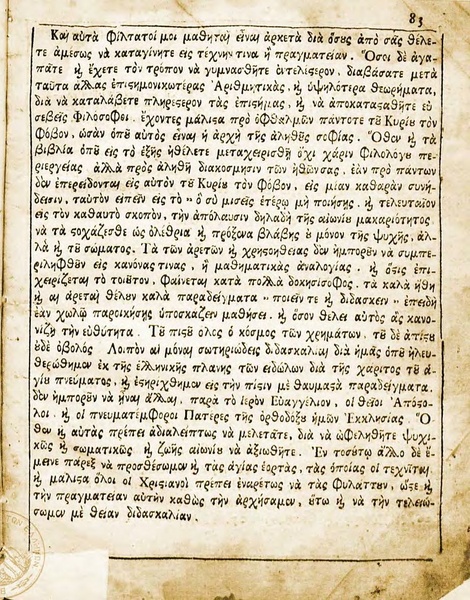 83
Καὶ αὐτὰ Φίλτατοί μοι μαθηταὶ εἶναι ἀρκετὰ διὰ ὅσους ἀπὸ σᾶς θέλε-
τε ἀμέσως νὰ καταγίνητε εἰς τέχνην τινα ἢ πραγματείαν. Ὅσοι δὲ ἀγα-
πᾶτε ἢ ἔχετε τὸν τρόπον νὰ γυμνασθῆτε ἐντελέστερον, διαβάσατε μετὰ
ταῦτα ἄλλας ἐπιστημονικωτέρας Ἀριθμητικὰς, ἢ ὑψηλότερα θεωρήματα,
διὰ νὰ καταλάβετε πληρέστερον τὰς ἐπιστήμας, ἢ νὰ ἀποκατασταθῆτε εὐ
σεβεῖς Φιλόσοφοι. ἔχοντες μάλιστα πρὸ ὀφθαλμῶν πάντοτε τοῦ Κυρίου τὸν
Φόβον, ὡσὰν ὁποῦ αὐτὸς εἶναι ἡ ἀρχὴ τῆς ἀληθοῦς σοφίας. Ὅθεν ἢ τὰ
βιβλία ὁποῦ εἰς τὸ ἑξῆς ἠθέλετε μεταχειρισθῆ ὄχι χάριν Φιλολόγου πε-
ριεργείας ἀλλὰ πρὸς ἀληθῆ διακόσμησιν τῶν ἠθῶν σας, ἐὰν πρὸ πάντων
δὲν ἐπερείδονται εἰς αὐτὸν τοῦ Κυρίου τὸν Φόβον, εἰς μίαν καθαρὰν συνή-
δεισιν, ταὐτὸν εἰπεῖν εἰς τὸ „ ὃ σὺ μισεῖς ἑτέρῳ μὴ ποιήσῃς. ἢ τελευταῖον
εἰς τὸν καθαυτὸ σκοπὸν, τὴν ἀπόλαυσιν δηλαδὴ τῆς αἰωνίου μακαριότητος
νὰ τὰ στοχάζεσθε ὡς ὀλέθρια ἢ πρόξενα βλάβης οὐ μόνον τῆς ψυχῆς, ἀλ-
λὰ ἢ τοῦ σώματος. Τὰ τῶν ἀρετῶν ἢ χρηστοηθείας δὲν ἠμποροῦν νὰ συμπε-
ριληφθοῦν εἰς κανόνας τινας, ἢ μαθηματικὰς ἀναλογίας. ἢ ὅστις ἐπι-
χειρίζεται τὸ τοιοῦτον, φαίνεται κατὰ πολλὰ δοκησίσοφος. τὰ καλὰ ἤθη
ἢ αἱ ἀρεταὶ θέλουν καλὰ παραδείγματα „ ποιεῖν τε ἢ διδάσκειν „ ἐπειδὴ
ἐὰν χωλῷ παροικήσῃς ὑποσκάζειν μαθήσει. ἢ ὅσον θέλει αὐτὸς ἂς κανο-
νίζῃ τὴν εὐθύτητα. Τοῦ πιστοῦ ὅλος ὁ κόσμος τῶν χρημάτων. τοῦ δὲ ἀπίστου
οὐδὲ ὀβολός Λοιπὸν αἱ μόναι σωτηριώδεις διδασκαλίαι διὰ ἡμᾶς ὁποῦ ἠλευ-
θερώθημεν ἐκ τῆς ἑλληνικῆς πλάνης τῶν εἰδώλων διὰ τῆς χάριτος τοῦ ἁ-
γίου πνεύματος, ἢ ἐστηρίχθημεν εἰς τὴν πίστιν μὲ θαυμαστὰ παραδείγματα.
δὲν ἠμποροῦν νὰ ἦναι ἄλλαι. παρὰ τὸ ἱερὸν Εὐαγγέλιον, οἱ θεῖοι Ἀπόστο-
λοι. ἢ οἱ πνευματέμφοροι Πατέρες τῆς ὀρθοδόξου ἡμῶν Ἐκκλησίας. Ὅ-
θεν ἢ αὐτὰς πρέπει ἀδιαλείπτως νὰ μελετᾶτε, διὰ νὰ ὠφεληθῆτε ψυχι-
κῶς ἢ σωματικῶς ἢ ζωῆς αἰωνίου νὰ ἀξιωθῆτε. Ἐν τοσούτῳ ἄλλο δὲ ἔ-
μεινε πάρεξ νὰ προσθέσωμεν ἢ τὰς ἁγίας ἑορτὰς, τὰς ὁποίας οἱ τεχνῖται
ἢ, μάλιστα ὅλοι οἱ Χριστιανοὶ πρέπει ἐναρέτως νὰ τὰς φυλάττουν, ὥστε ἢ
τὴν πραγματείαν αὐτὴν καθὼς τὴν ἀρχήσαμεν, οὕτω ἢ νὰ τὴν τελειώ-
σωμεν μὲ θείαν διδασκαλίαν.